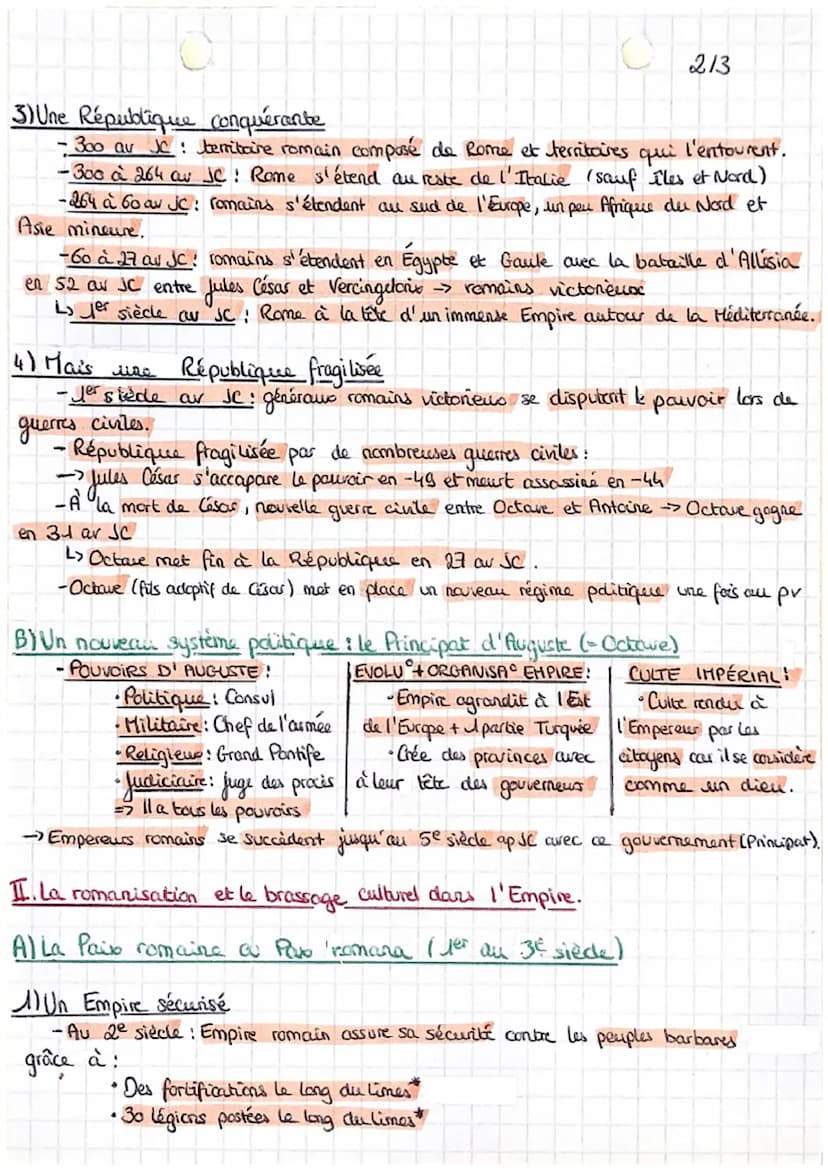 2/3
3) Une République conquérante
- 300 av JC : territoire romain composé de Rome et territoires qui l'entourent.
- 300 à 264 av JC : Rome s'étend au reste de l'Italie (sauf îles et Nord)
- 264 à 60 av JC : romains s'étendent au sud de l'Europe, un peu Afrique du Nord et
Asie mineure.
- 60 à 27 av JC : romains s'étendent en Égypte et Gaule avec la bataille d'Allésia
en 52 av JC entre Jules César et Vercingétorix → romains victorieux
↳ 1er siècle av JC : Rome à la tête d'un immense Empire autour de la Méditerranée.
4) Mais une République fragilisée
- 1er siècle av JC : généraux romains victorieux se disputent le pouvoir lors de
guerres civiles.
- République fragilisée par de nombreuses guerres civiles :
→ Jules César s'accapare le pouvoir en -49 et meurt assassiné en -44
- À la mort de César, nouvelle guerre civile entre Octave et Antoine → Octave gagne
en 31 av JC
↳ Octave met fin à la République en 27 av JC.
- Octave (fils adoptif de César) met en place un nouveau régime politique une fois au pv
B) Un nouveau système politique : le Principat d'Auguste (= Octave)
- POUVOIRS D'AUGUSTE :
• Politique : Consul
• Militaire : Chef de l'armée
• Religieux : Grand Pontife
• Judiciaire : juge des procès
=> Il a tous les pouvoirs
EVOLU° + ORGANISA° EMPIRE :
• Empire agrandit à l'Est
de l'Europe + 1 partie Turquie
• Crée des provinces avec
à leur tête des gouverneurs
CULTE IMPÉRIAL :
• Culte rendu à
l'Empereur par les
citoyens car il se considère
comme un dieu.
→ Empereurs romains se succèdent jusqu'au 5e siècle ap JC avec ce gouvernement (Principat).
II. La romanisation et le brassage culturel dans l'Empire.
A) La Paix romaine ou Pax romana (1er au 3e siècle)
1) Un Empire sécurisé
- Au 2e siècle : Empire romain assure sa sécurité contre les peuples barbares
grâce à :
• Des fortifications le long du limes*
• 30 légions postées le long du limes*